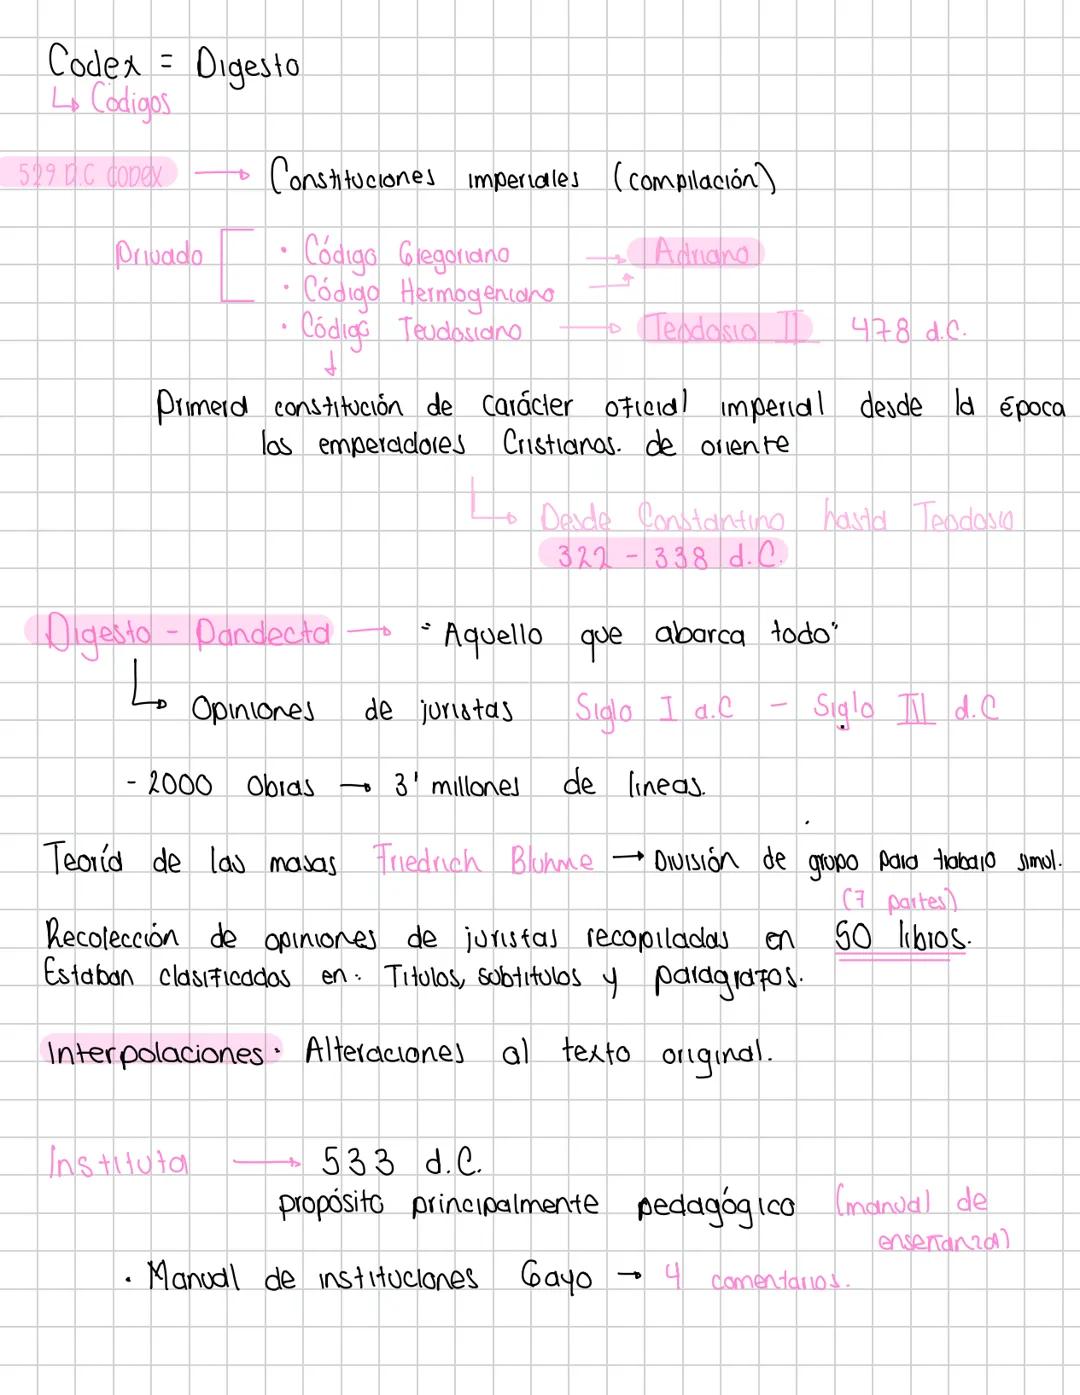 Codex = Digesto
↳ Códigos
529 D.C CODEX → Constituciones imperiales (compilación)
Privado [ • Código Gregoriano → Adriano
• Código Hermogeniano →
• Código Teudosiano → Teodosio II 478 d.C.
↓
Primera constitución de carácter oficial imperial desde la época
los emperadores Cristianos. de oriente
↳ Desde Constantino hasta Teodosio
322 - 338 d.C.
Digesto - Pandecta → "Aquello que abarca todo"
↳ Opiniones de juristas Siglo I a.C - Siglo III d.C
- 2000 Obras → 3' millones de lineas.
Teoría de las masas Friedrich Bluhme → División de grupo para trabajo simul.
(7 partes)
Recolección de opiniones de juristas recopiladas en 50 libros.
Estaban clasificadas en: Titulos, subtitulos y paragrafos.
Interpolaciones • Alteraciones al texto original.
Instituta → 533 d.C.
propósito principalmente pedagógico (manual de
enseñanza)
• Manual de instituciones Gayo → 4 comentarios.